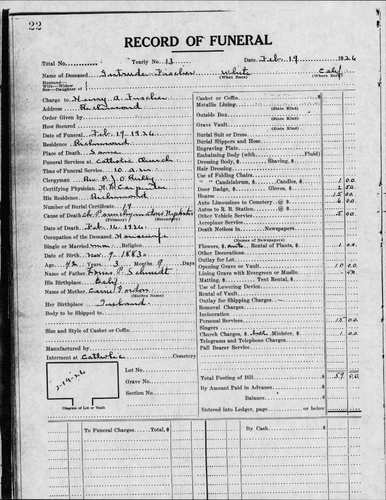 22
RECORD OF FUNERAL
Total No. Yearly No. 13 Date Feb. 19 1926
Name of Deceased Gertrude Fischer White Calif
(What Race) (Where Born)
Husband—
Wife—Widow
Son—Daughter of
Charge to Henry A. Fischer
Address Richmond
Order Given by
How Secured
Date of Funeral Feb. 19. 1926.
Residence Richmond
Place of Death Same
Funeral Services at Catholic Church
Time of Funeral Service 10 a.m.
Clergyman Rev. P. J. O'Reilly
Certifying Physician H. N. Carpenter
His Residence Richmond
Number of Burial Certificate 19
Cause of Death Ch. Parenchymatous Nephritis
(Primary) (Secondary)
Date of Death Feb. 16. 1926.
Occupation of the Deceased Housewife
Single or Married mar. Religion
Date of Birth Nov. 7. 1883.
Age 42 Years 3 Months 9 Days
Name of Father P. Schmidt
His Birthplace Calif.
Name of Mother Gordon
(Maiden Name)
Her Birthplace Ireland
Body to be Shipped to
Size and Style of Casket or Coffin
Manufactured by
Interment at Catholic Cemetery
Lot No.
Grave No.
Section No.
2-19-26
Diagram of Lot or Vault
Casket or Coffin
Metallic Lining
(State Kind)
Outside Box
(State Kind)
Grave Vault
(State Kind)
Burial Suit or Dress
Burial Slippers and Hose
Engraving Plate
Embalming Body (with Fluid)
Dressing Body, $ Shaving, $
Hair Dressing
Use of Folding Chairs
" " Candelabrum, $ Candles, $ 1 00
Door Badge, $ Gloves, $ 2 50
Hearse 15 00
Auto Limousines to Cemetery @ 6 00
Autos to R. R. Station @
Other Vehicle Service 5 00
Aeroplane Service
Death Notices in Newspapers
(Names of Newspapers)
Flowers, $ Rental of Plants, $ 1 00
Other Decorations
Outlay for Lot
Opening Grave or Vault 10 00
Lining Grave with Evergreen or Muslin
Matting, $ Tent Rental, $
Use of Lowering Device
Rental of Vault
Outlay for Shipping Charges
Removal Charges
Incineration
Personal Service 15 00
Singers
Church Charges, $ Minister, $ 1 00
Telegrams and Telephone Charges
Pall Bearer Service
Total Footing of Bill $ 57 00
By Amount Paid in Advance $
Balance
Entered into Ledger, page or below
To Funeral Charges Total $
By Cash $